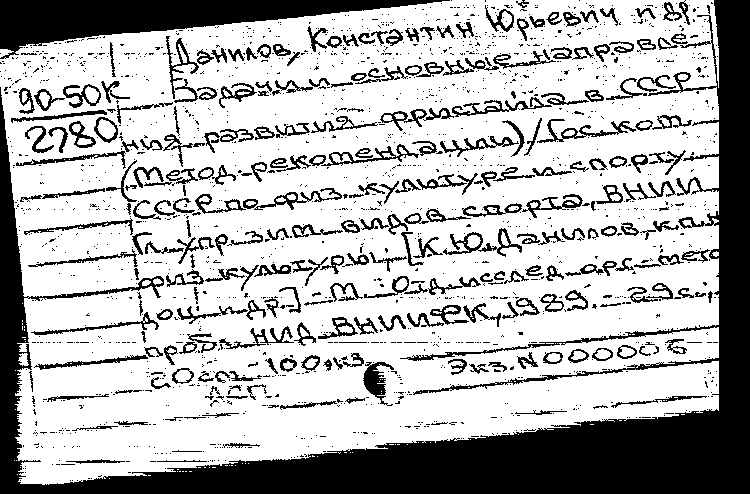 Данилов, Константин Юрьевич и др.
90-50к
2780
Задачи и основные направле-
ния развития фристайла в СССР:
(Метод. рекомендации) / Гос. ком.
СССР по физ. культуре и спорту.
Гл. упр. зим. видов спорта, ВНИИ
физ. культуры; [К.Ю. Данилов, к.п.н.
доц. и др.] - М.: Отд. исслед. орг.-мето
пробл. НИД ВНИИФК, 1989. - 29 с.;
20 см - 100 экз.
Экз. N 000006
АСП.